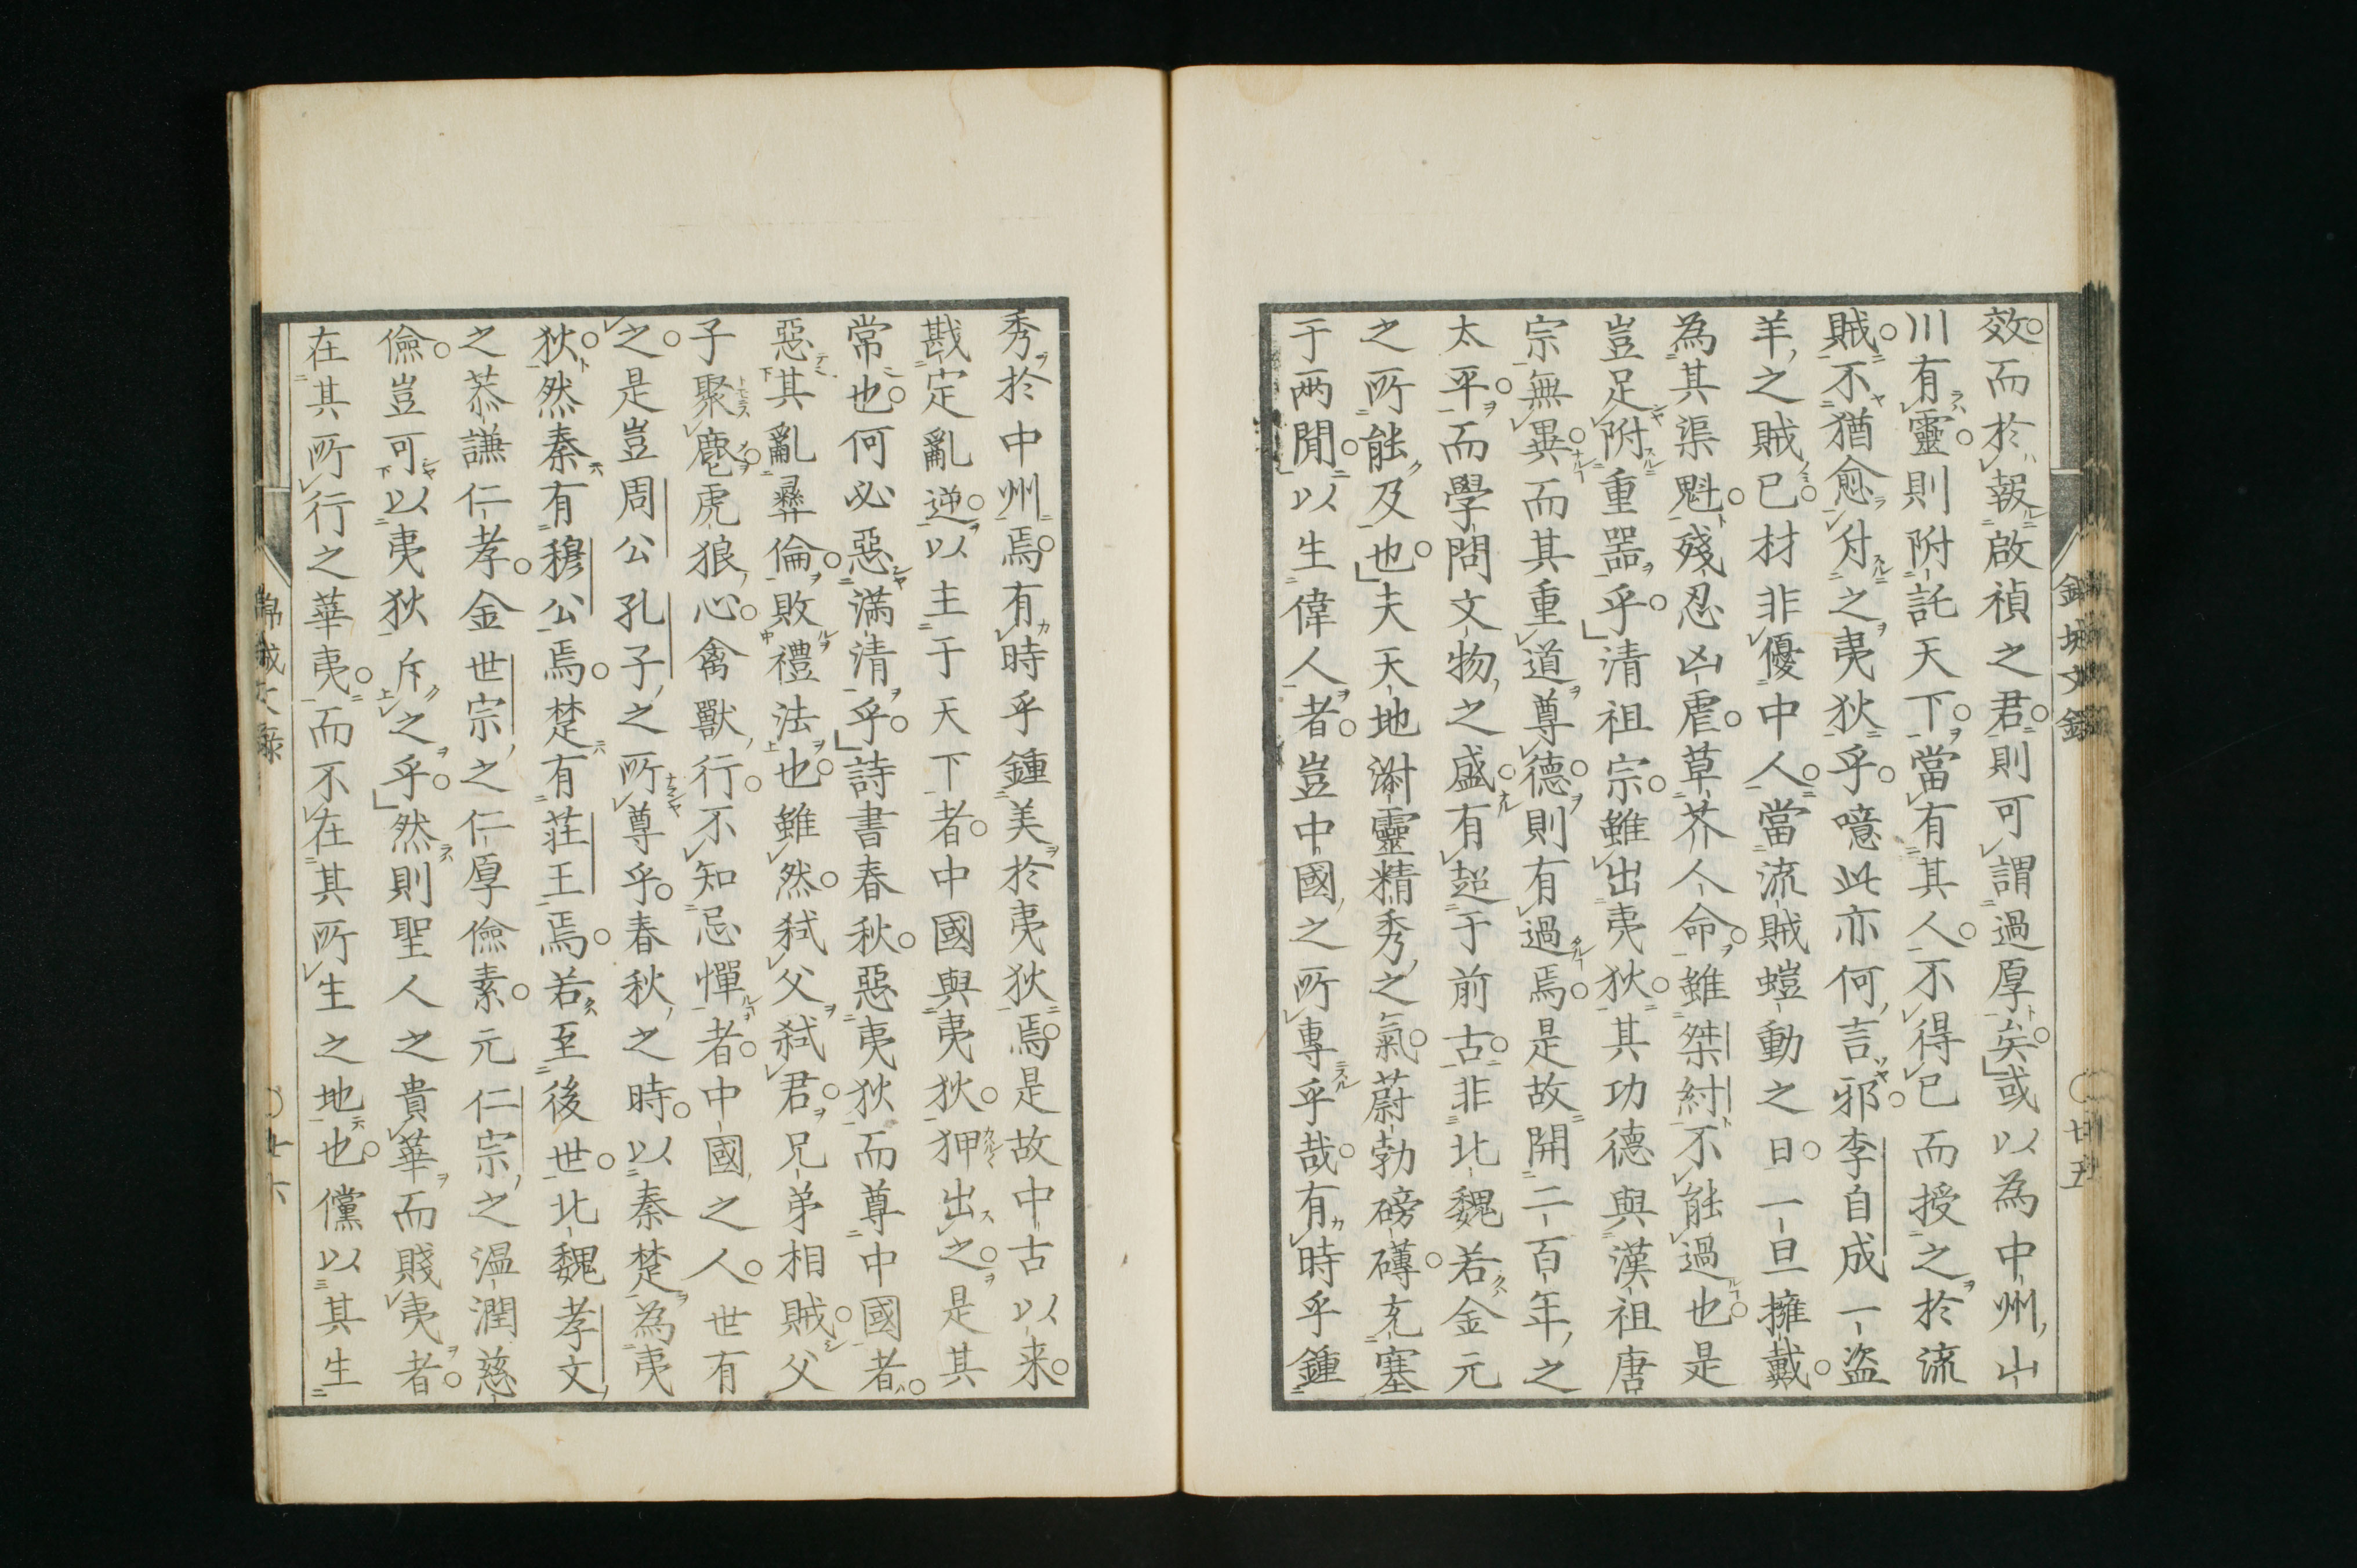 效而於報啟禎之君則可謂過厚矣或以為中州山
川有靈則附託天下當有其人不得已而授之於流
賊不猶愈付之夷狄乎噫此亦何言邪李自成一盜
羊之賊已材非優中人當流賊螘動之日一旦擁戴
為其渠魁殘忍凶虐草芥人命雖桀紂不能過也是
豈足附重噐乎清祖宗雖出夷狄其功德與漢祖唐
宗無異而其重道尊德則有過焉是故開二百年之
太平而學問文物之盛有超于前古非北魏若金元
之所能及也夫天地澍靈精秀之氣蔚勃磅礴充塞
于两閒以生偉人者豈中國之所專乎哉有時乎鍾
秀於中州焉有時乎鍾美於夷狄焉是故中古以来
戡定亂逆以主于天下者中國與夷狄狎出之是其
常也何必惡滿清乎詩書春秋惡夷狄而尊中國者
惡其亂彝倫敗禮法也雖然弒父弒君兄弟相賊父
子聚麀虎狼心禽獸行不知忌憚者中國之人世有
之是豈周公孔子之所尊乎春秋之時以秦楚為夷
狄然秦有穆公焉楚有莊王焉若至後世北魏孝文
之恭謙仁孝金世宗之仁厚儉素元仁宗之温潤慈
儉豈可以夷狄斥之乎然則聖人之貴華而賤夷者
在其所行之華夷而不在其所生之地也儻以其生
錦城文錄
廿五
錦城文錄
廿六